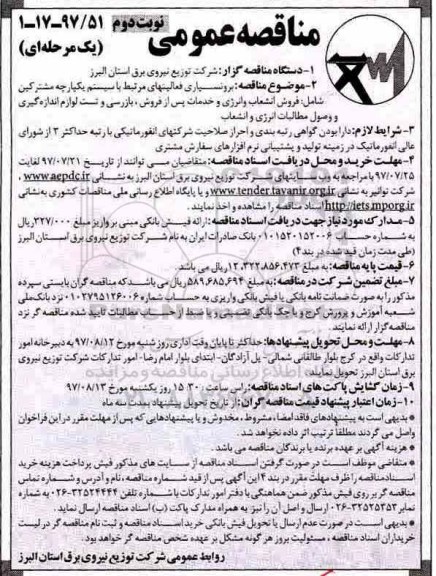 نوبت دوم
۱-۱۷-۹۷/۵۱
(یک مرحله‌ای)
مناقصه عمومی
۱-دستگاه مناقصه گزار: شرکت توزیع نیروی برق استان البرز
۲-موضوع مناقصه: برونسپاری فعالیتهای مرتبط با سیستم یکپارچه مشترکین
شامل: فروش انشعاب وانرژی و خدمات پس از فروش ، بازرسی و تست لوازم اندازه گیری
و وصول مطالبات انرژی و انشعاب
۳- شرایط لازم: دارا بودن گواهی رتبه بندی و احراز صلاحیت شرکتهای انفورماتیکی با رتبه حداکثر ۳ از شورای
عالی انفورماتیک در زمینه تولید و پشتیبانی نرم افزارهای سفارش مشتری
۴-مهلت خرید و محل دریافت اسناد مناقصه: متقاضیان می توانند از تاریخ ۹۷/۰۷/۲۱ لغایت
۹۷/۰۷/۲۵ با مراجعه به وب سایتهای شرکت توزیع نیروی برق استان البرز به نشانی www.aepdc.ir ،
شرکت توانیر به نشانی www.tender.tavanir.org.ir و یا پایگاه اطلاع رسانی ملی مناقصات کشوری به نشانی
http://iets.mporg.ir اسناد مناقصه را مشاهده و اخذ نمایند .
۵-مدارک مورد نیاز جهت دریافت اسناد مناقصه: ارائه فیش بانکی مبنی بر واریز مبلغ ۳۲۷/۰۰۰ ریال
به شماره حساب ۰۱۰۱۵۲۰۱۵۲۰۰۶ بانک صادرات ایران به نام شرکت توزیع نیروی برق استان البرز
(طی مدت زمان قید شده در بند ۴)
۶-قیمت پایه مناقصه: به مبلغ ۱۲,۳۲۲,۸۵۶,۴۷۳ ریال می باشد.
۷-مبلغ تضمین شرکت در مناقصه: به مبلغ ۵۸۹,۶۸۵,۶۹۴ ریال می باشد که مناقصه گران بایستی سپرده
مذکور را به صورت ضمانت نامه بانکی یا فیش بانکی واریزی به حساب شماره ۰۱۰۲۷۹۵۱۲۶۰۰۶ نزد بانک ملی
شعبه آموزش و پرورش کرج و یا چک بانکی تضمینی و یا ضبط از حساب مطالبات تایید شده مناقصه گر نزد
مناقصه گزار ارائه نمایند .
۸-مهلت و محل تحویل پیشنهادها: حداکثر تا پایان وقت اداری روز شنبه مورخ ۹۷/۰۸/۱۲ به دبیرخانه امور
تدارکات واقع در کرج بلوار طالقانی شمالی- پل آزادگان- ابتدای بلوار امام رضا- امور تدارکات شرکت توزیع نیروی
برق استان البرز تحویل نمایند
۹-زمان گشایش پاکت های اسناد مناقصه: راس ساعت ۱۵:۳۰ روز یکشنبه مورخ ۹۷/۰۸/۱۳
۱۰-زمان اعتبار پیشنهاد قیمت مناقصه گران: از تاریخ تحویل پیشنهاد بمدت سه ماه
* بدیهی است به پیشنهادهای فاقد امضاء، مشروط ، مخدوش و یا پیشنهادهایی که پس از مهلت مقرر در این فراخوان
واصل می گردند مطلقا ترتیب اثر داده نخواهد شد .
* هزینه آگهی بر عهده برنده یا برندگان مناقصه می باشد .
* متقاضی موظف است در صورت گرفتن اسناد مناقصه از سایت های مذکور فیش پرداخت هزینه خرید
اسناد مناقصه را ظرف مهلت مقرر در بند ۴ این آگهی پس از قید شماره مناقصه ، نام و آدرس و شماره تماس
مناقصه گر بر روی فیش مذکور ضمن هماهنگی با دفتر امور تدارکات با شماره تلفن ۳۲۵۲۴۴۴۴-۰۲۶ به شماره
نمابر ۳۲۵۲۵۳۵۳-۰۲۶ ارسال و اصل آن را نیز به همراه مدارک پاکت (ب) اسناد مناقصه ارسال نماید .
* بدیهی است در صورت عدم ارسال یا تحویل فیش بانکی خرید اسناد مناقصه و ثبت نام مناقصه گر در لیست
خریداران اسناد مناقصه ، مسئولیت بروز هر گونه مشکل بر عهده شخص مناقصه گر خواهد بود .
روابط عمومی شرکت توزیع نیروی برق استان البرز